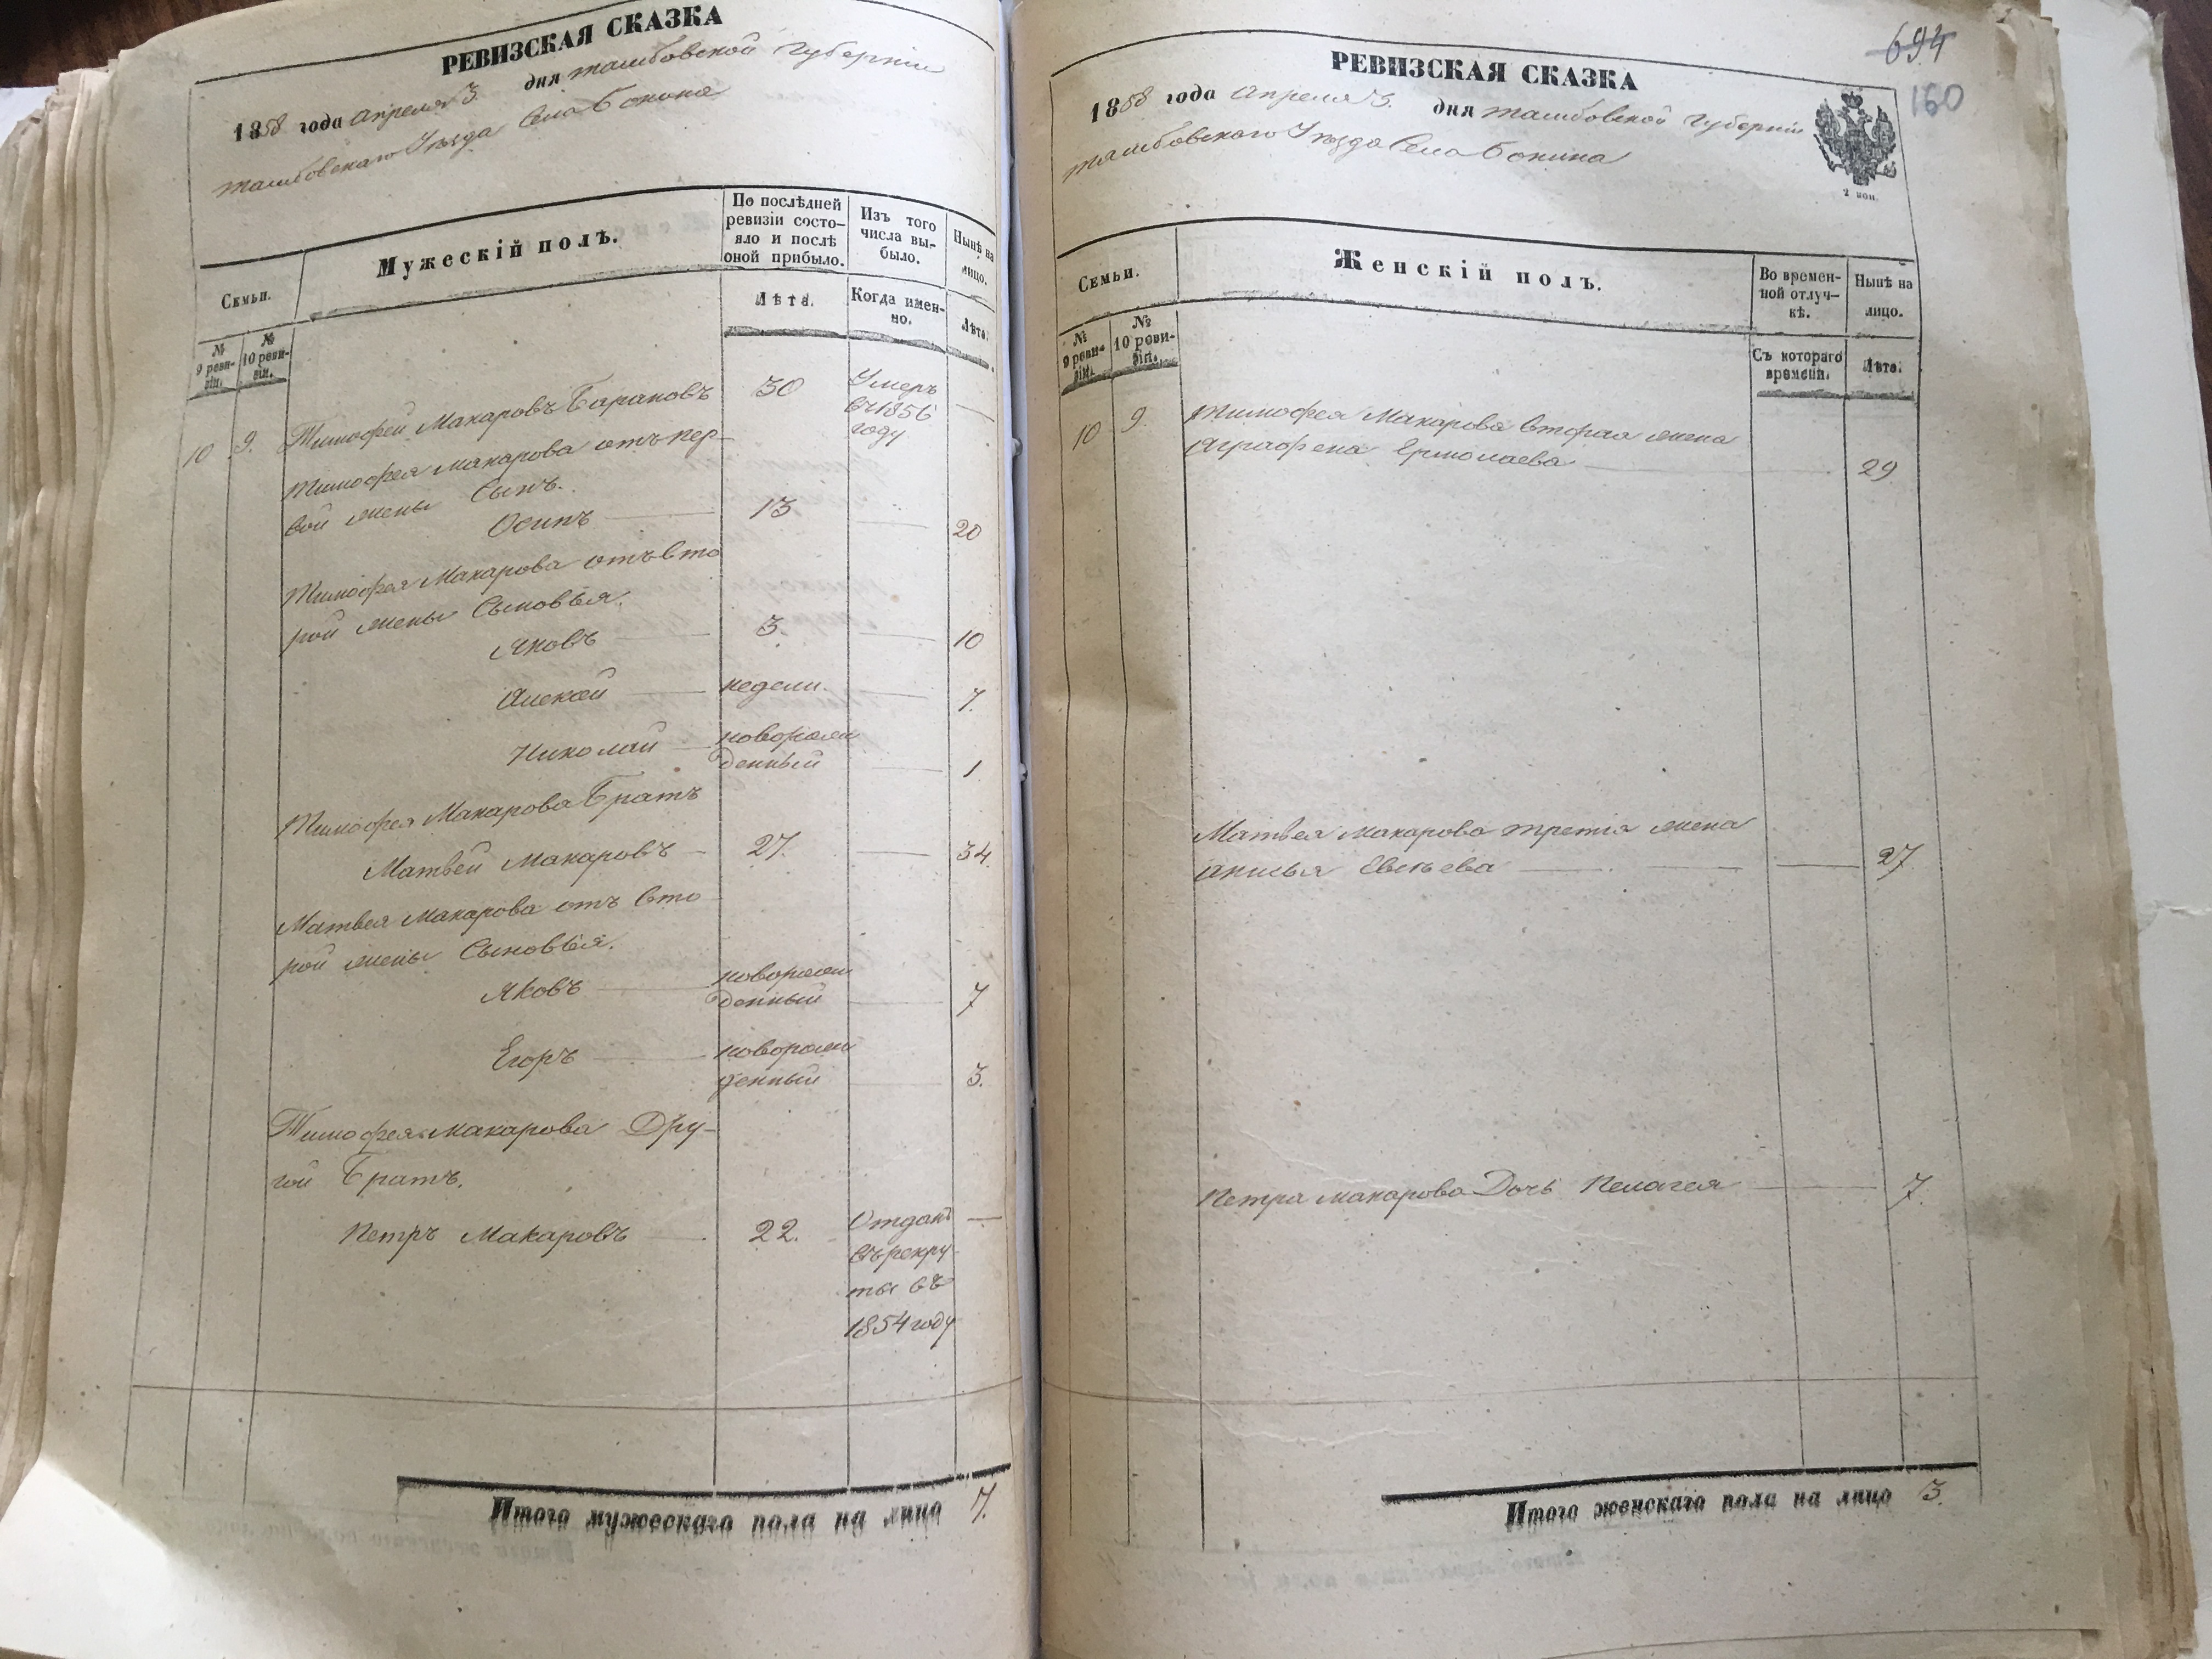 РЕВИЗСКАЯ СКАЗКА
1858 года Апреля 3. дня Тамбовской Губернiи
Тамбовскаго Уѣзда Села Бокина
Семьи.
Мужескiй полъ.
По послѣдней ревизiи состояло и послѣ оной прибыло.
Изъ того числа выбыло.
Нынѣ на лицо.
Лѣта.
Когда именно.
Лѣта.
№ 9 ревизiи.
№ 10 ревизiи.
10 9. Тимофей Макаровъ Барановъ 30 Умеръ
въ 1856
году
Тимофея Макарова отъ пер-
вой жены Сынъ.
Осипъ 13 20
Тимофея Макарова отъ вто
рой жены Сыновья.
Яковъ 3. 10
Алексей недели. 7.
Николай новорож
денный 1
Тимофея Макарова Братъ
Матвей Макаровъ 27. 34.
Матвея Макарова отъ вто
рой жены Сыновья.
Яковъ новорож
денный 7
Егоръ новорож
денный 3.
Тимофея Макарова Дру-
гой Братъ.
Петръ Макаровъ 22. Отданъ
въ рекру-
ты въ
1854 году
Итого мужескаго пола на лицо 7.
694
160
РЕВИЗСКАЯ СКАЗКА
1858 года Апреля 3. дня Тамбовской Губернiи
Тамбовскаго Уѣзда Села Бокина
2 коп.
Семьи.
Женскiй полъ.
Во времен-
ной отлуч-
кѣ.
Нынѣ на
лицо.
№ 9 реви-
зiи.
№ 10 реви-
зiи.
Съ котораго
времени.
Лѣта.
10 9. Тимофея Макарова вторая жена
Аграфена Ермолаева 29
Матвея Макарова третiя жена
Анисья Евсѣева 27
Петра Макарова Дочь Пелагея 7.
Итого женскаго пола на лицо 3.